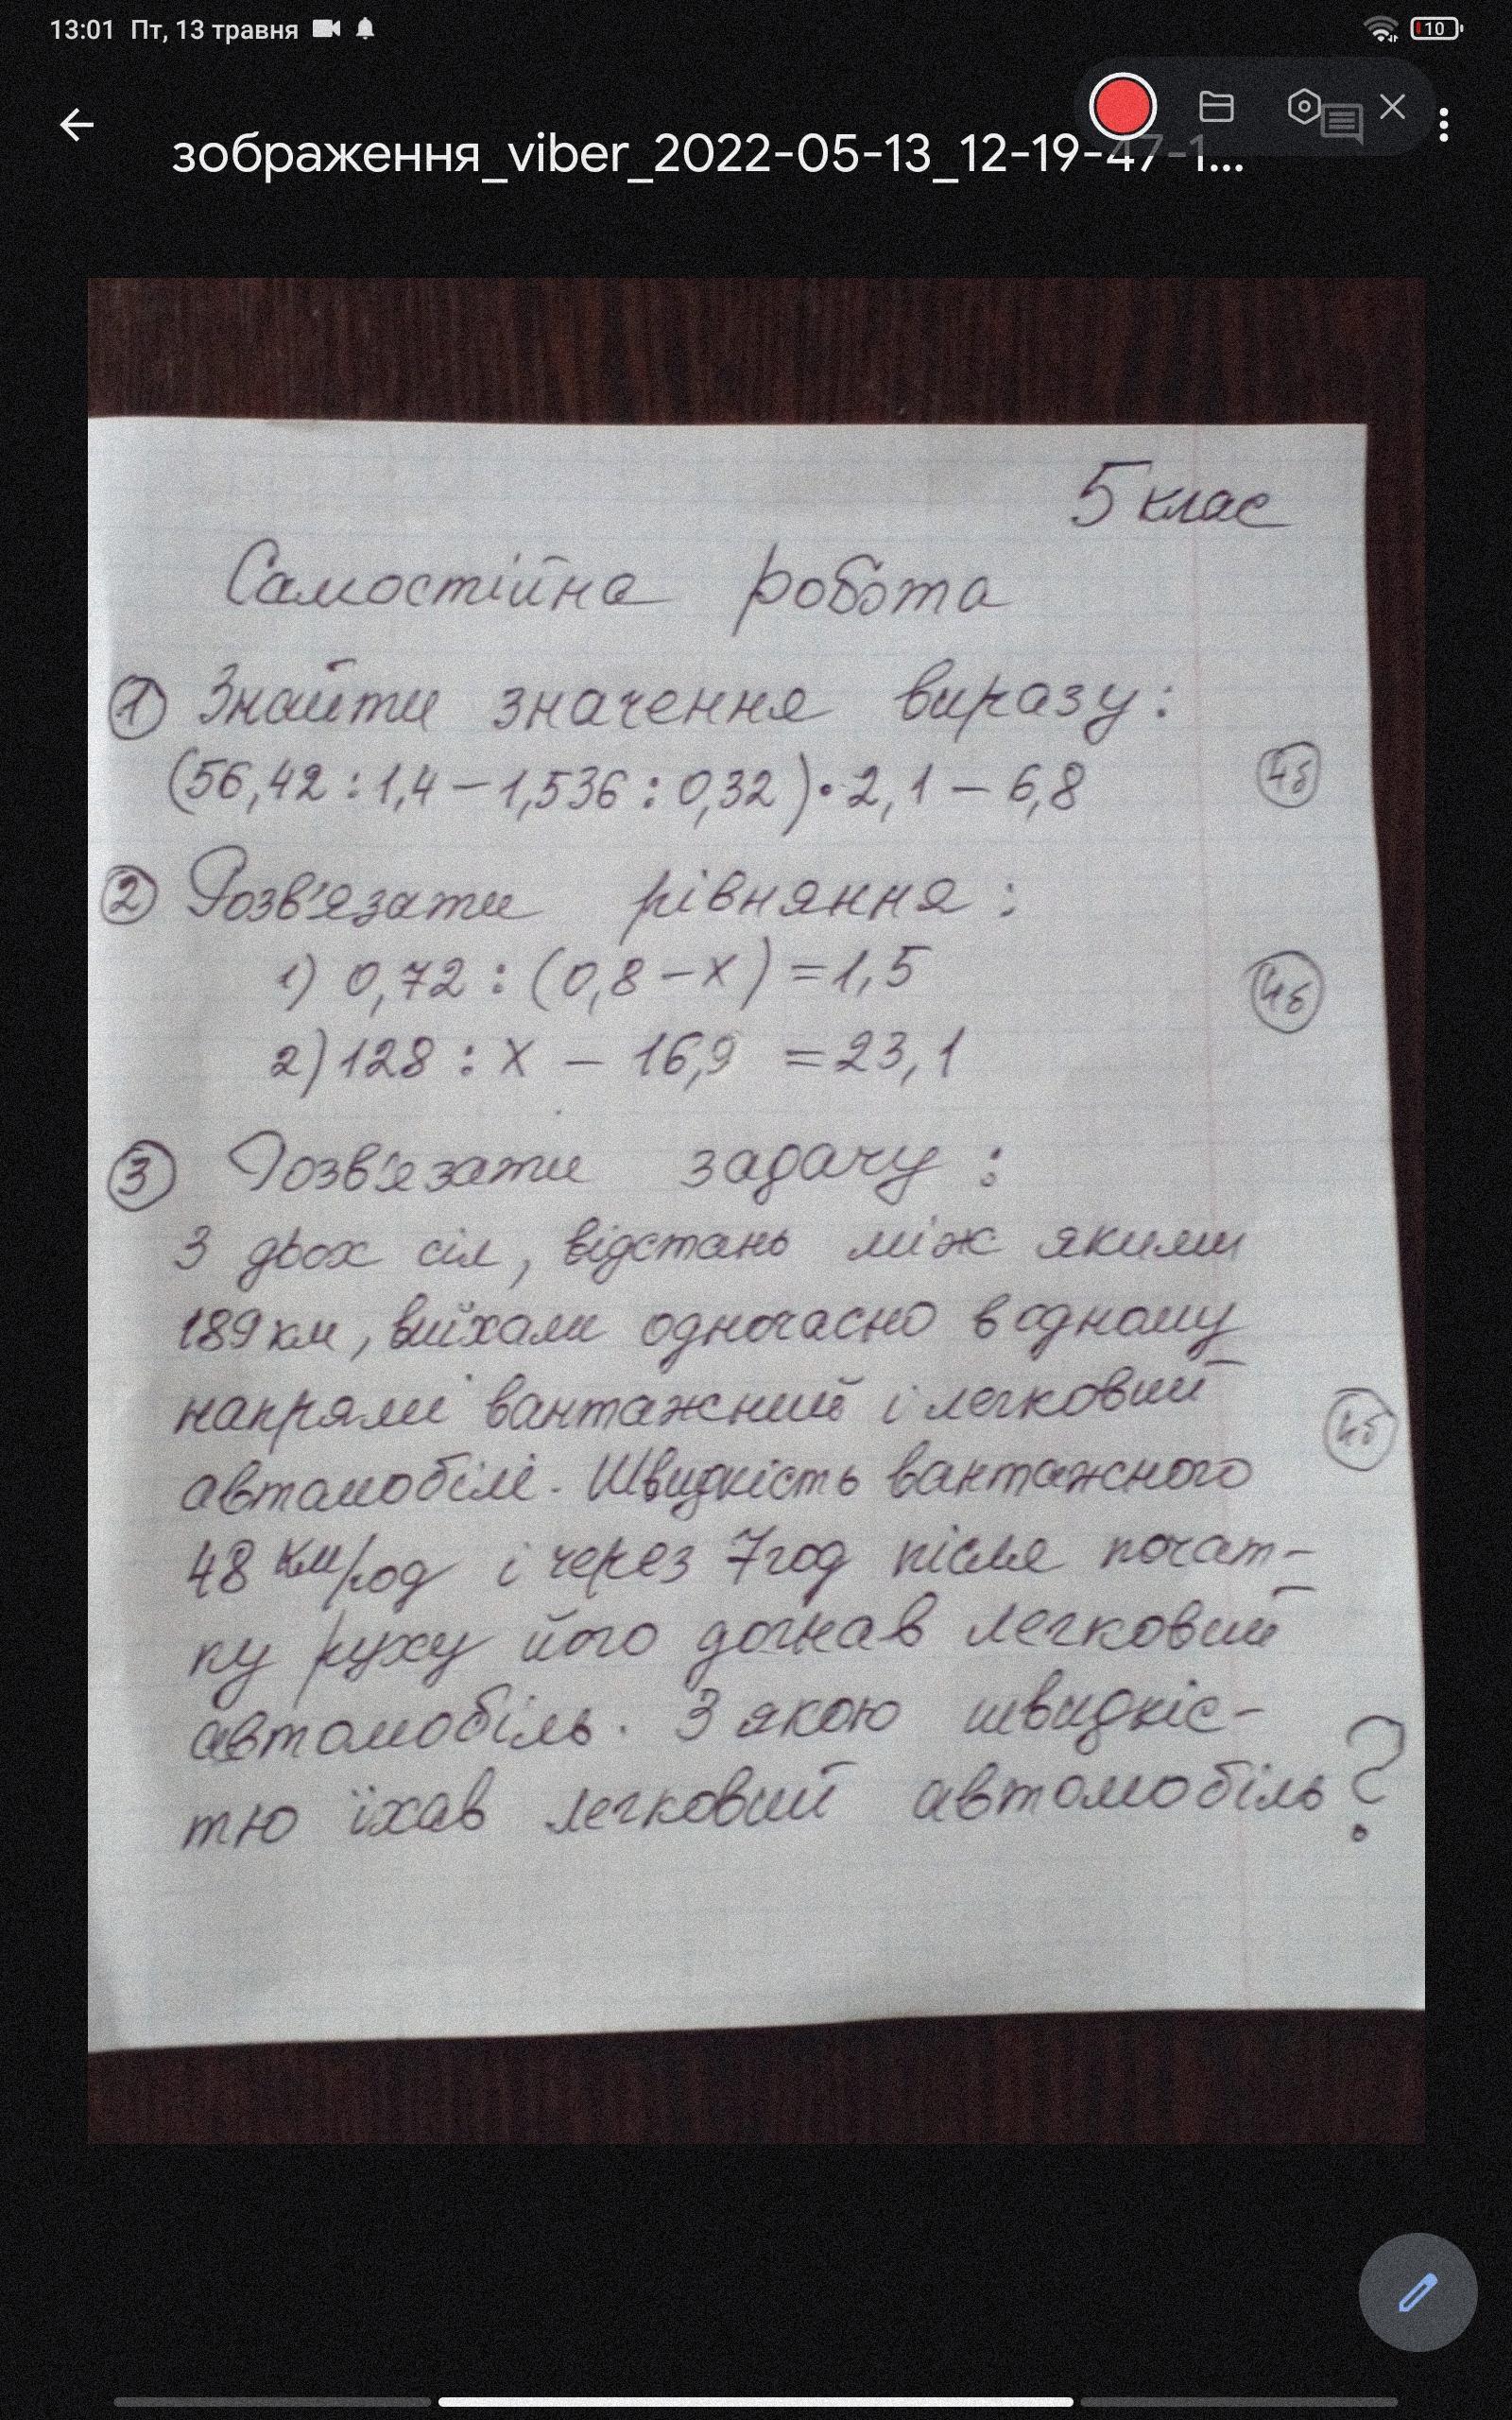 13:01 Пт, 13 травня
10
зображення_viber_2022-05-13_12-19-47-1...
5 клас
Самостійна робота
1 Знайти значення виразу:
(56,42 : 1,4 – 1,536 : 0,32) • 2,1 – 6,8
4б
2 Розв'язати рівняння :
1) 0,72 : (0,8 – x) = 1,5
4б
2) 128 : x – 16,9 = 23,1
3 Розв'язати задачу :
З двох сіл, відстань між якими
189 км, виїхали одночасно в одному
напрямі вантажний і легковий
4б
автомобілі. Швидкість вантажного
48 км/год і через 7 год після почат-
ку руху його догнав легковий
автомобіль. З якою швидкіс-
тю їхав легковий автомобіль?